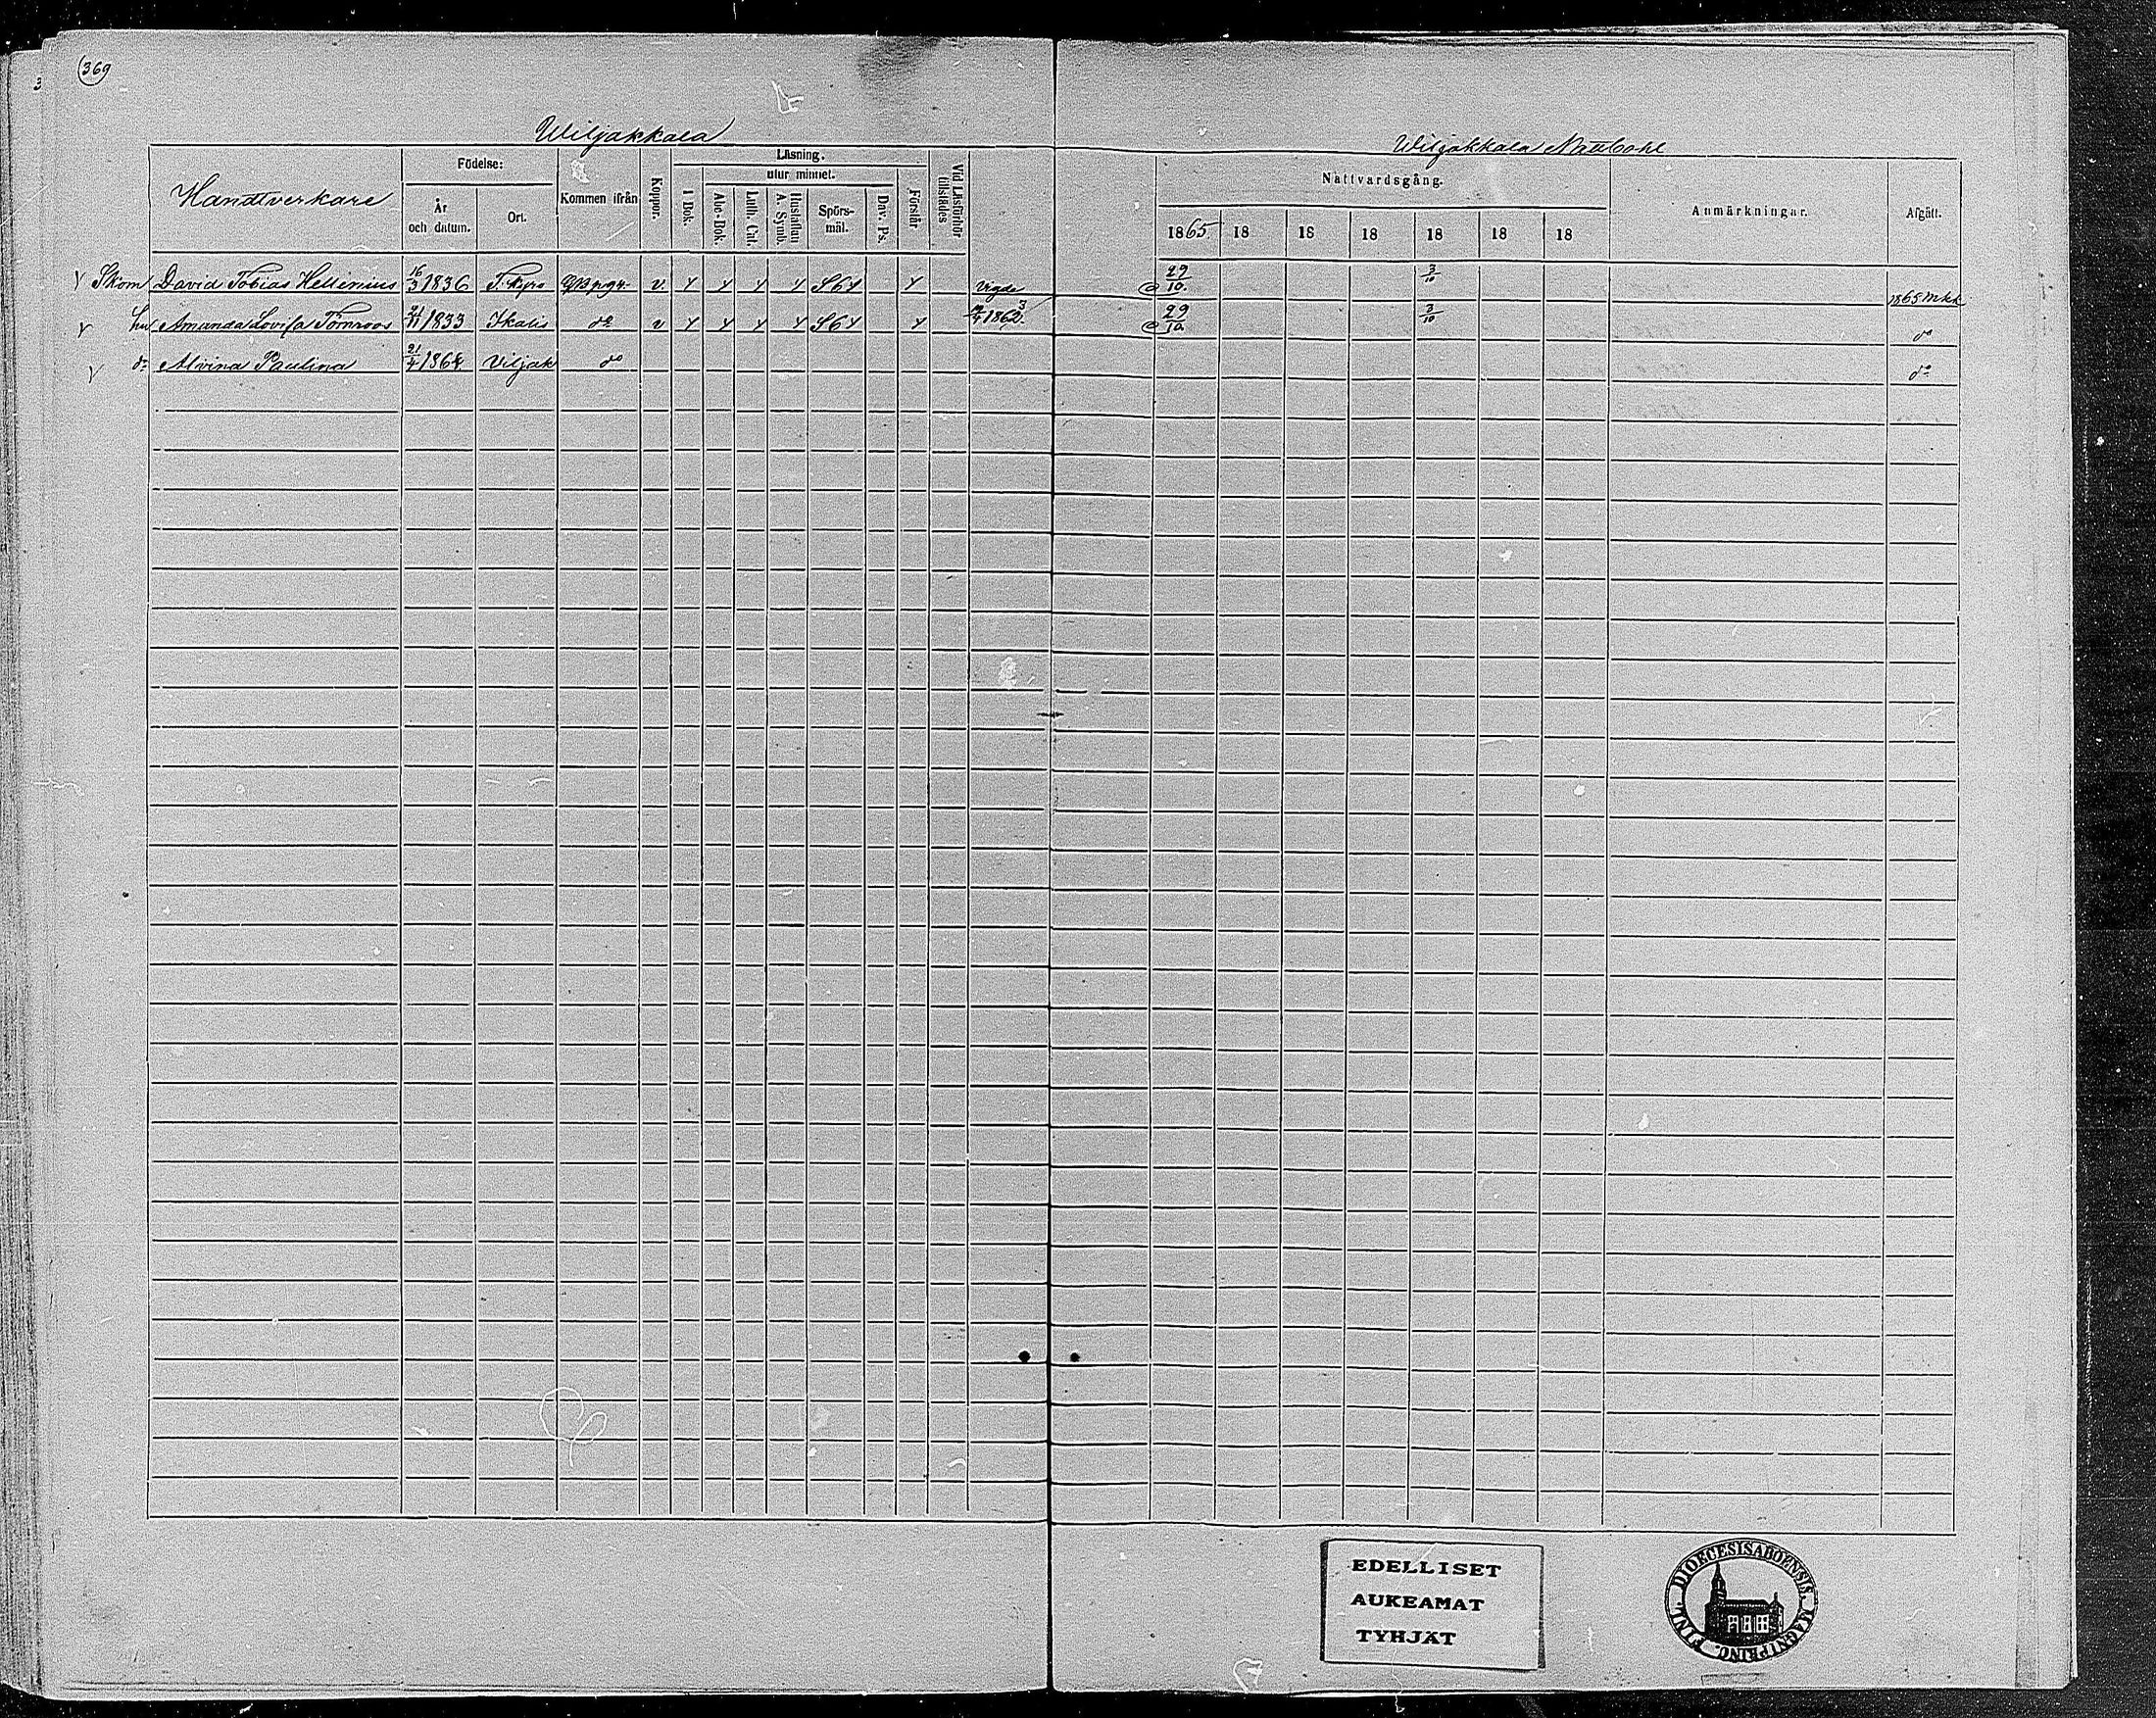 369
Wiljakkala
Wiljakkala
Handtverkare
Födelse:
År och datum.
Ort.
Kommen ifrån
Koppor.
Läsning.
utur minnet.
I Bok.
Abc-Bok.
Luth. Cat.
Hustaflan A. Symb.
Spörs-mål.
Dav. Ps.
Förstår
Vid Läsförhör tillstädes
Nattvardsgång.
1865. 18 18 18 18 18 18
Anmärkningar.
Afgått.
Skom David Tobias Hellenius 16/3 1836 T. Kyro v. Vigde 29/10. 3/10 1865 mkk
hu Amanda Lovisa Törnroos 1833 Ikalis do v 1863 29/10 3/10 do
dr Alvina Paulina 21/4 1864 Viljak do do
EDELLISET
AUKEAMAT
TYHJÄT
DIOECESIS ABOENSIS. MAGNI PRINC. FINL.